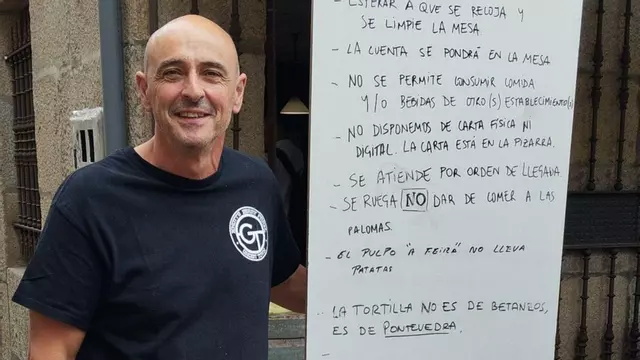 - ESPERAR A QUE SE RECOJA Y
SE LIMPIE LA MESA
- LA CUENTA SE PONDRÁ EN LA MESA
- NO SE PERMITE CONSUMIR COMIDA
Y/O BEBIDAS DE OTRO(S) ESTABLECIMIENTO(S)
- NO DISPONEMOS DE CARTA FÍSICA NI
DIGITAL. LA CARTA ESTÁ EN LA PIZARRA.
- SE ATIENDE POR ORDEN DE LLEGADA
- SE RUEGA NO DAR DE COMER A LAS
PALOMAS.
- EL PULPO "A FEIRA" NO LLEVA
PATATAS
- LA TORTILLA NO ES DE BETANZOS,
ES DE PONTEVEDRA.
-
GT